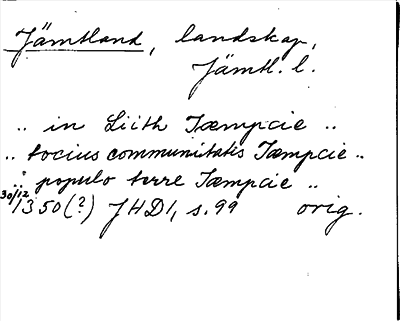 Jämtland, landskap,
Jämtl. l.
.. in Liith Iæmpcie ..
.. tocius communitatis Iæmpcie ..
.. populo terre Iæmpcie ..
30/12 1350(?) JHD 1, s. 99 orig.